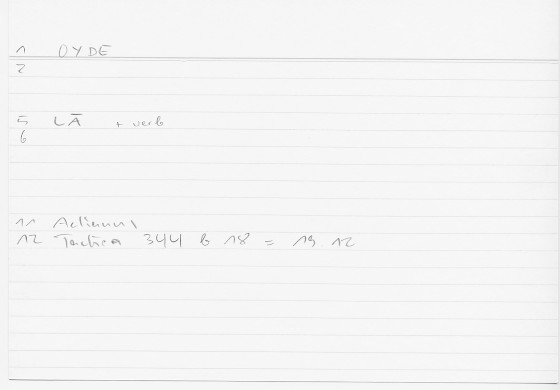 1 OYDE
2
5 LĀ + verb
6
11 Aelianus
12 Tactica 344 b 18 = 19 12